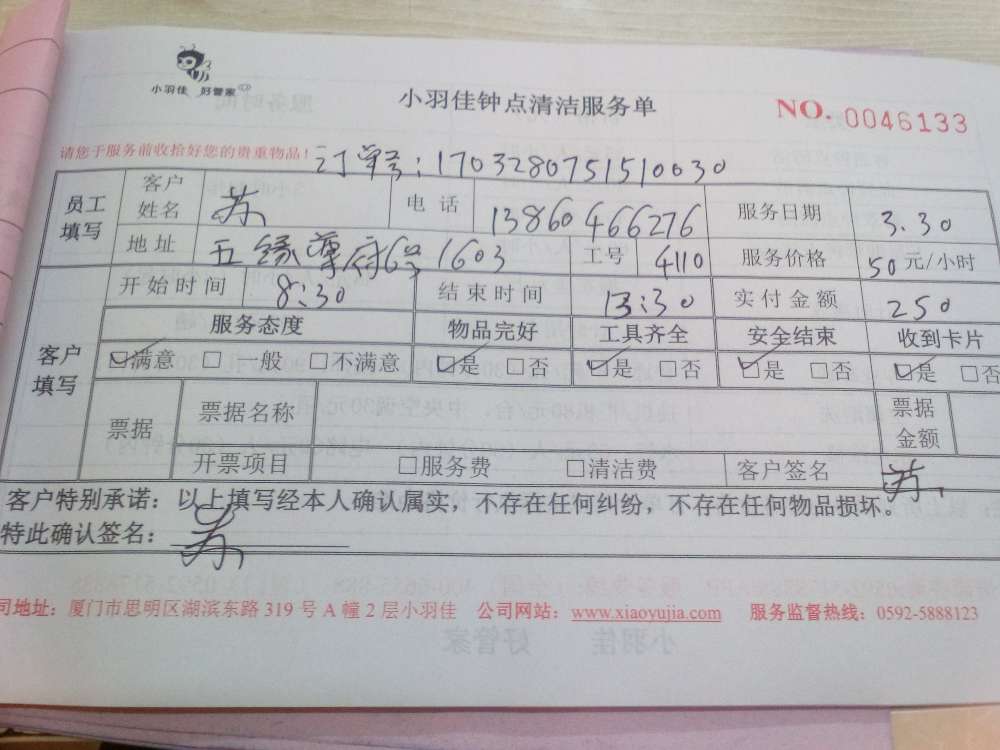 小羽佳 好管家
小羽佳钟点清洁服务单
NO. 0046133
请您于服务前收拾好您的贵重物品!
订单号:170328075151510030
员工填写 客户姓名 苏 电话 13860466276 服务日期 3.30
地址 五缘尊府6号1603 工号 4110 服务价格 50元/小时
客户填写 开始时间 8:30 结束时间 13:30 实付金额 250
服务态度 物品完好 工具齐全 安全结束 收到卡片
☑满意 □一般 □不满意 ☑是 □否 ☑是 □否 ☑是 □否 ☑是 □否
票据 票据名称 票据金额
开票项目 □服务费 □清洁费 客户签名 苏
客户特别承诺:以上填写经本人确认属实,不存在任何纠纷,不存在任何物品损坏。
特此确认签名: 苏
司地址:厦门市思明区湖滨东路319号A幢2层小羽佳 公司网站:www.xiaoyujia.com 服务监督热线:0592-5888123